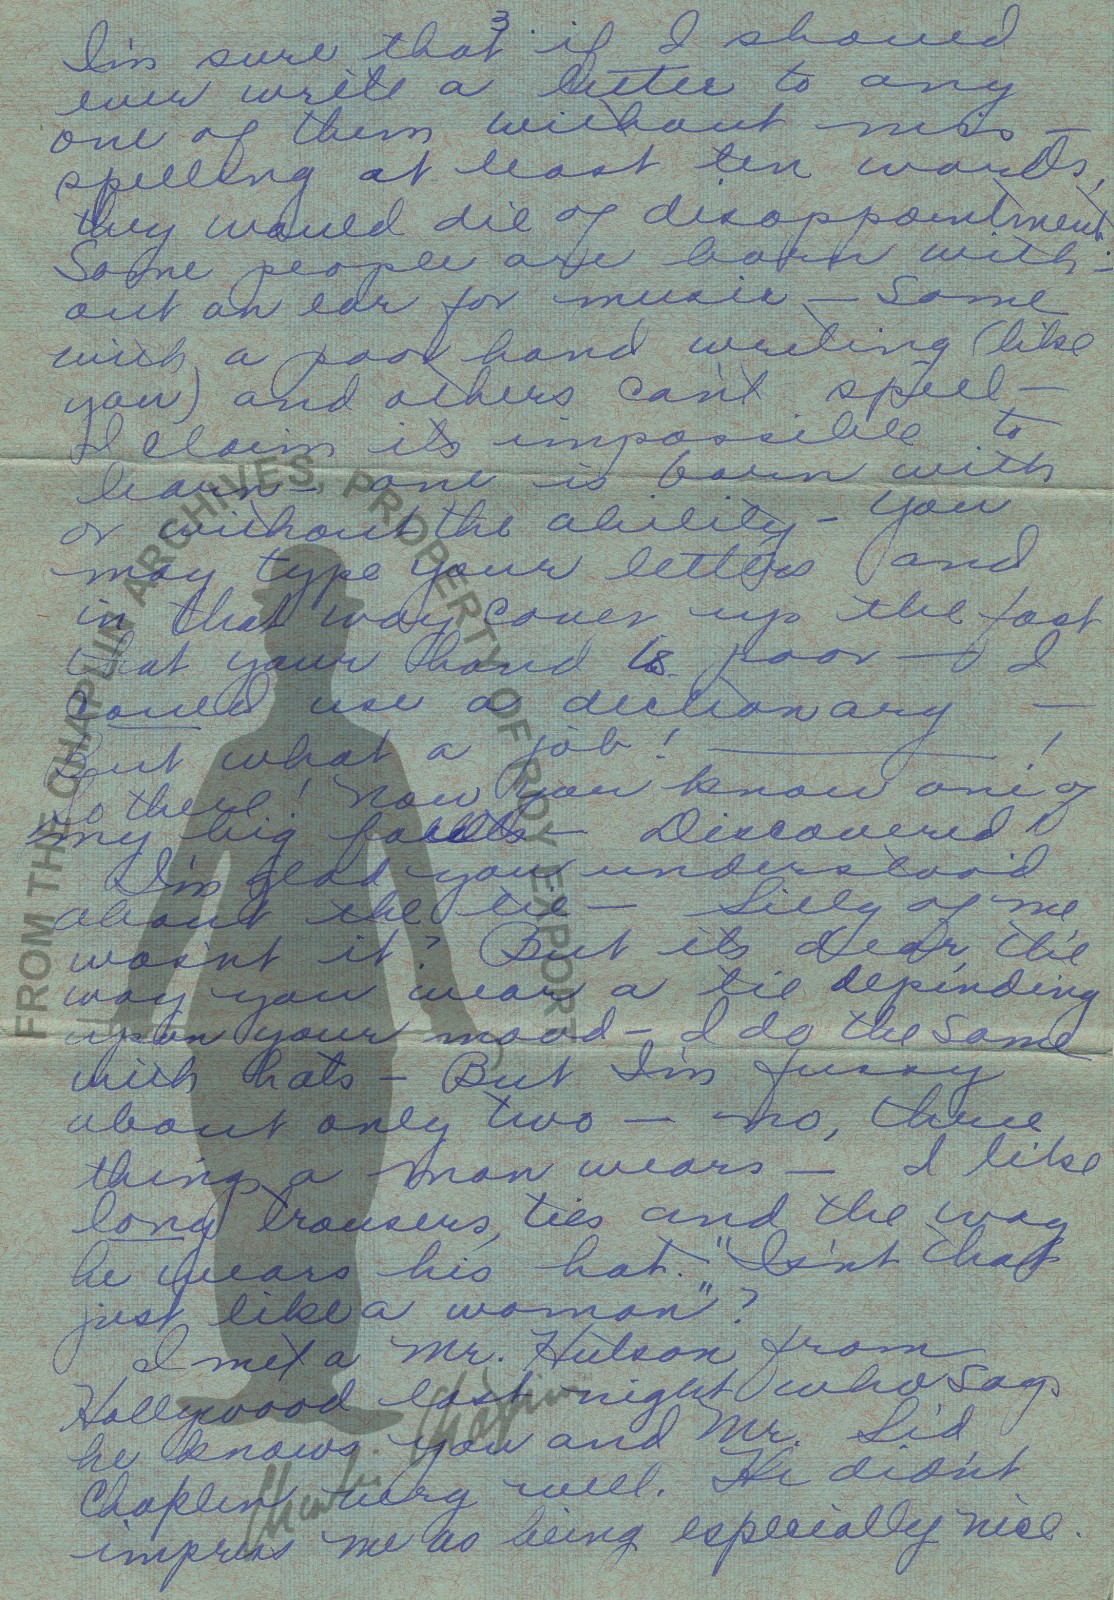 3
I'm sure that if I should
ever write a letter to any
one of them without miss —
spelling at least ten words,
they would die of disappointment.
Some people are born with-
out an ear for music — Some
with a poor hand writing (like
you) and others can't spell —
I claim its impossible to
learn — one is born with
or without the ability — You
may type your letters and
in that way cover up the fact
that your hand is poor — I
could use a dictionary —
but what a job! — !
So there! Now you know one of
my big faults — Discovered!
I'm glad you understood
about the tie — Silly of me
wasn't it? But its dear, the
way you wear a tie depending
upon your mood — I do the same
with hats — But I'm fussy
about only two — no, three
things a man wears — I like
long trousers, ties and the way
he wears his hat. "Isn't that
just like a woman"?
I met a Mr. Hutson from
Hollywood last night who says
he knows you and Mr. Sid
Chaplin very well. He didn't
impress me as being especially nice.
FROM THE CHAPLIN ARCHIVES, PROPERTY OF ROY EXPORT
Charlie Chaplin